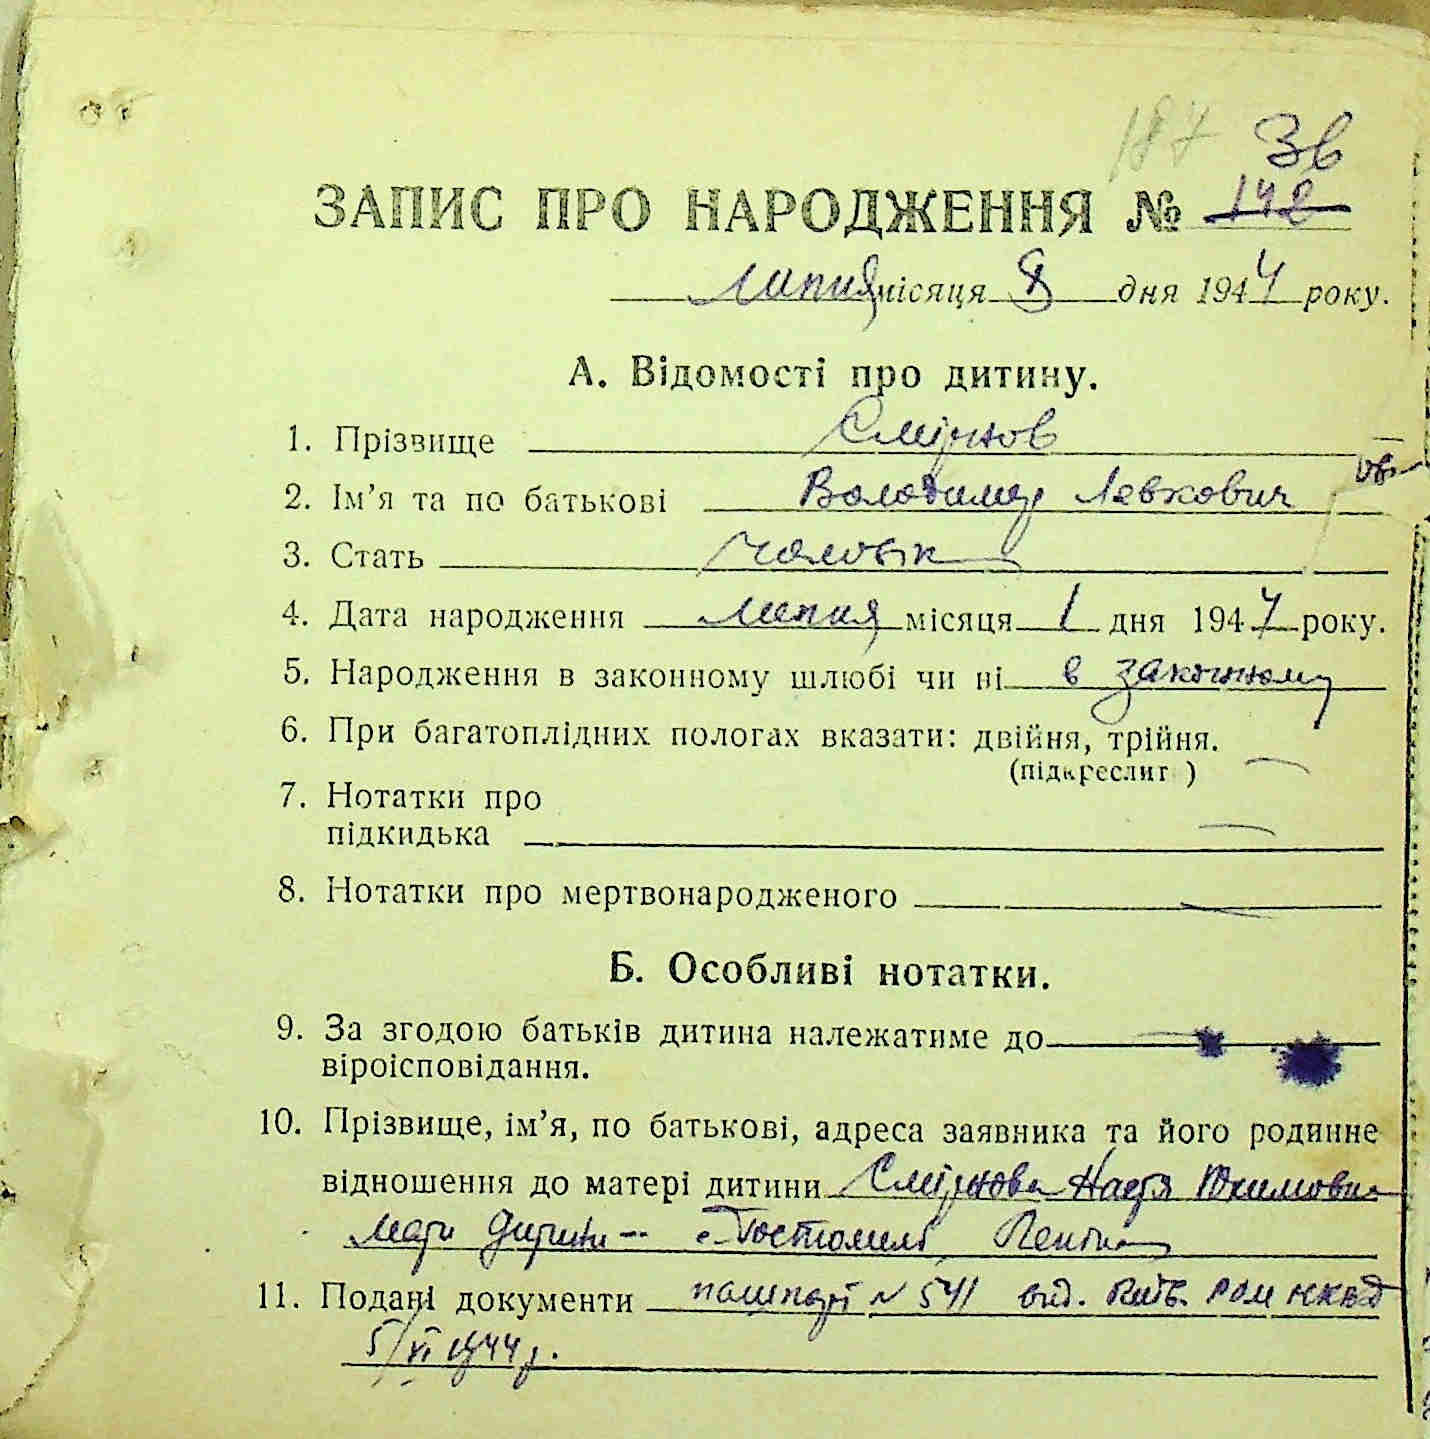 187 Зв
ЗАПИС ПРО НАРОДЖЕННЯ № 142
липня місяця 8 дня 1944 року.
А. Відомості про дитину.
1. Прізвище Смірнов
2. Ім'я та по батькові Володимир Левкович
3. Стать чоловік
4. Дата народження липня місяця 1 дня 1944 року.
5. Народження в законному шлюбі чи ні в законному
6. При багатоплідних пологах вказати: двійня, трійня.
(підкреслит )
7. Нотатки про
підкидька
8. Нотатки про мертвонародженого
Б. Особливі нотатки.
9. За згодою батьків дитина належатиме до
віроісповідання.
10. Прізвище, ім'я, по батькові, адреса заявника та його родинне
відношення до матері дитини Смірнова Настя Юхимовна
мати дитини -- с. Гостомель
11. Подані документи пашпорт № 541 вид. Київ. РОМ НКВД
5/VI 1944 р.